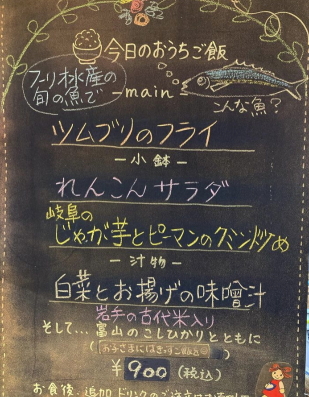 今日のおうちご飯
フーリ水産の
旬の魚で
-main
こんな魚?
ツムブリのフライ
-小鉢-
れんこんサラダ
岐阜の
じゃが芋とピーマンのクミン炒め
-汁物-
白菜とお揚げの味噌汁
岩手の古代米入り
そして…富山のこしひかりとともに
¥900(税込)
お食後 追加ドリンクのご注文